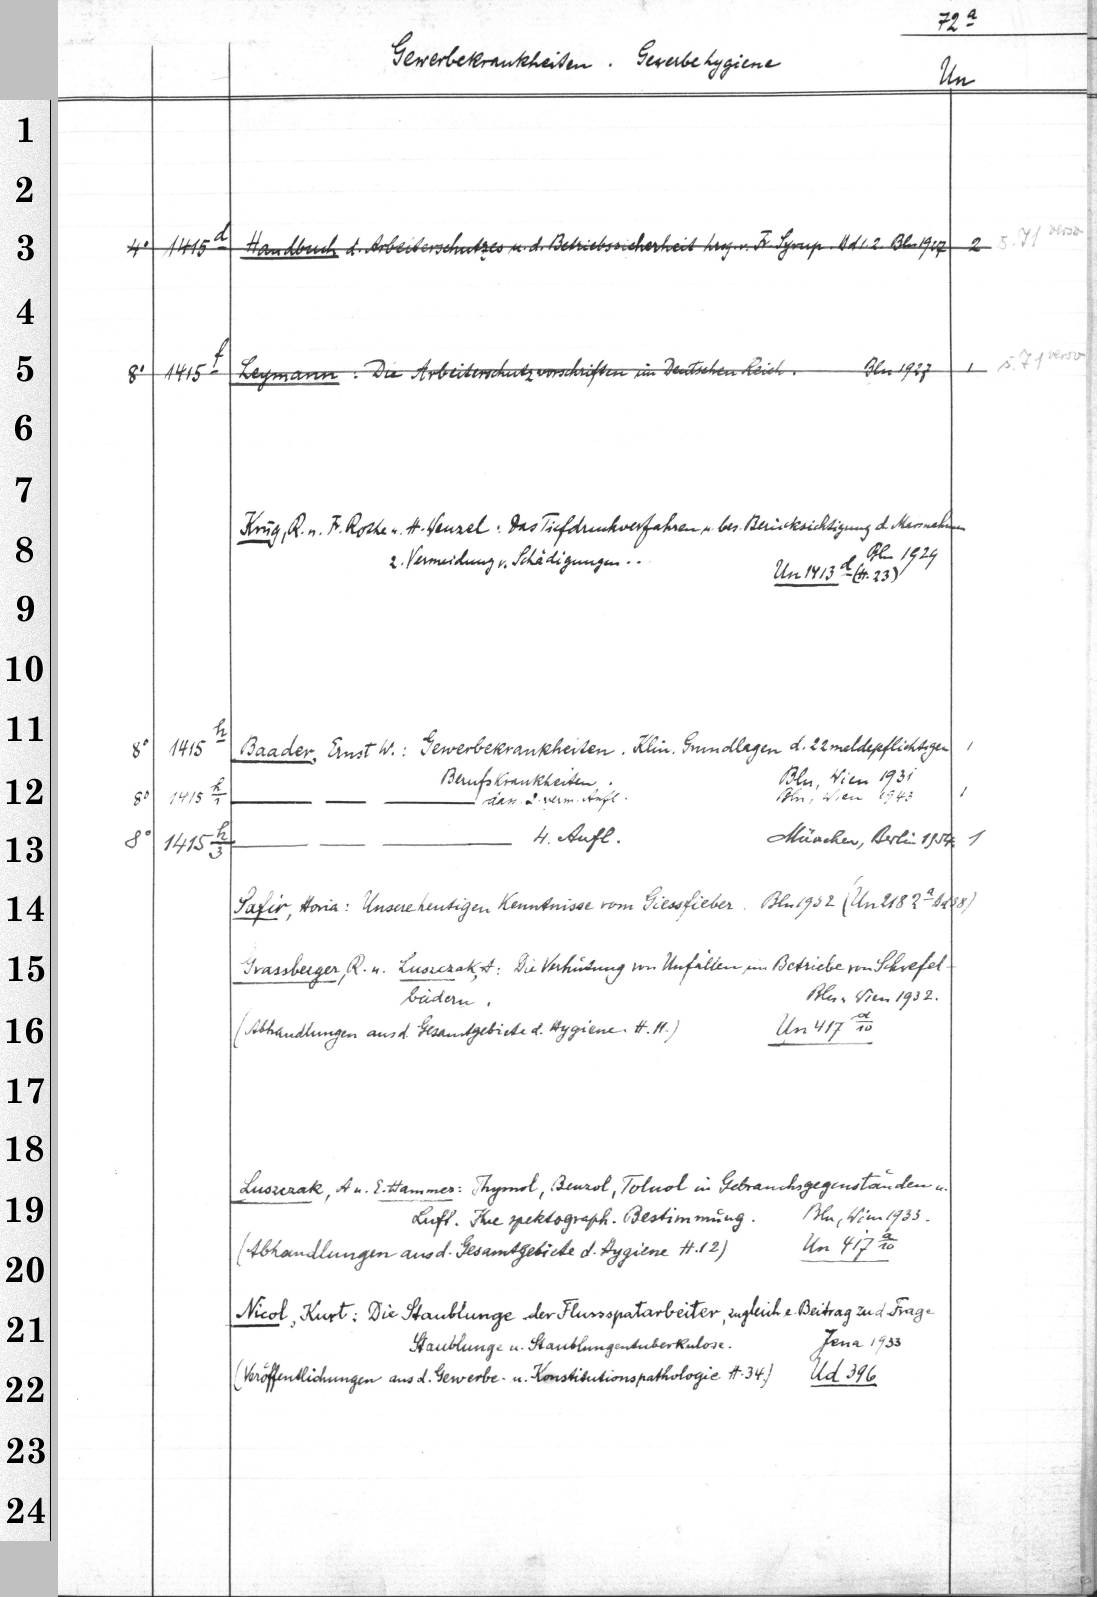 72 a
Gewerbekrankheiten. Gewerbehygiene
Un
1
2
3 4° 1415 d Handbuch d. Arbeiterschutzes u. d. Betriebssicherheit hrsg. v. Fr. Syrup. Bd 1.2. Bln 1927 2 s. 71 verso
4
5 8° 1415 f Leymann: Die Arbeiterschutzvorschriften im Deutschen Reich. Bln 1927 1 s. 71 verso
6
7
Krüg, R. u. Fr. Rothe u. H. Wenzel: Das Tiefdruckverfahren u. bes. Berücksichtigung d. Massnahmen
8 z. Vermeidung v. Schädigungen.. Bln 1929
Un 1413 d (H. 23)
9
10
11 8° 1415 h Baader, Ernst W.: Gewerbekrankheiten. Klin. Grundlagen d. 22 meldepflichtigen 1
Berufskrankheiten. Bln, Wien 1931
12 8° 1415 h/1 — — — dass. 2. verm. Aufl. Bln, Wien 1943 1
13 8° 1415 h/3 — — — 4. Aufl. München, Berlin 1954. 1
14 Safir, Horia: Unsere heutigen Kenntnisse vom Giessfieber. Bln 1932 (Un 218 2 a Bd 38)
15 Grassberger, R. u. Luszczak, A: Die Verhütung von Unfällen im Betriebe von Schwefel-
bädern. Bln u. Wien 1932.
16 (Abhandlungen aus d. Gesamtgebiete d. Hygiene. H. 11.) Un 417 a/10
17
18
Luszczak, A u. E. Hammer: Thymol, Benzol, Toluol in Gebrauchsgegenständen u.
19 Luft. Ihre spektograph. Bestimmung. Bln, Wien 1933.
(Abhandlungen aus d. Gesamtgebiete d. Hygiene H. 12) Un 417 a/10
20
21 Nicol, Kurt: Die Staublunge der Flussspatarbeiter, zugleich e. Beitrag zu d. Frage
Staublunge u. Staublungentuberkulose. Jena 1933
22 (Veröffentlichungen aus d. Gewerbe- u. Konstitutionspathologie H. 34.) Ud 396
23
24